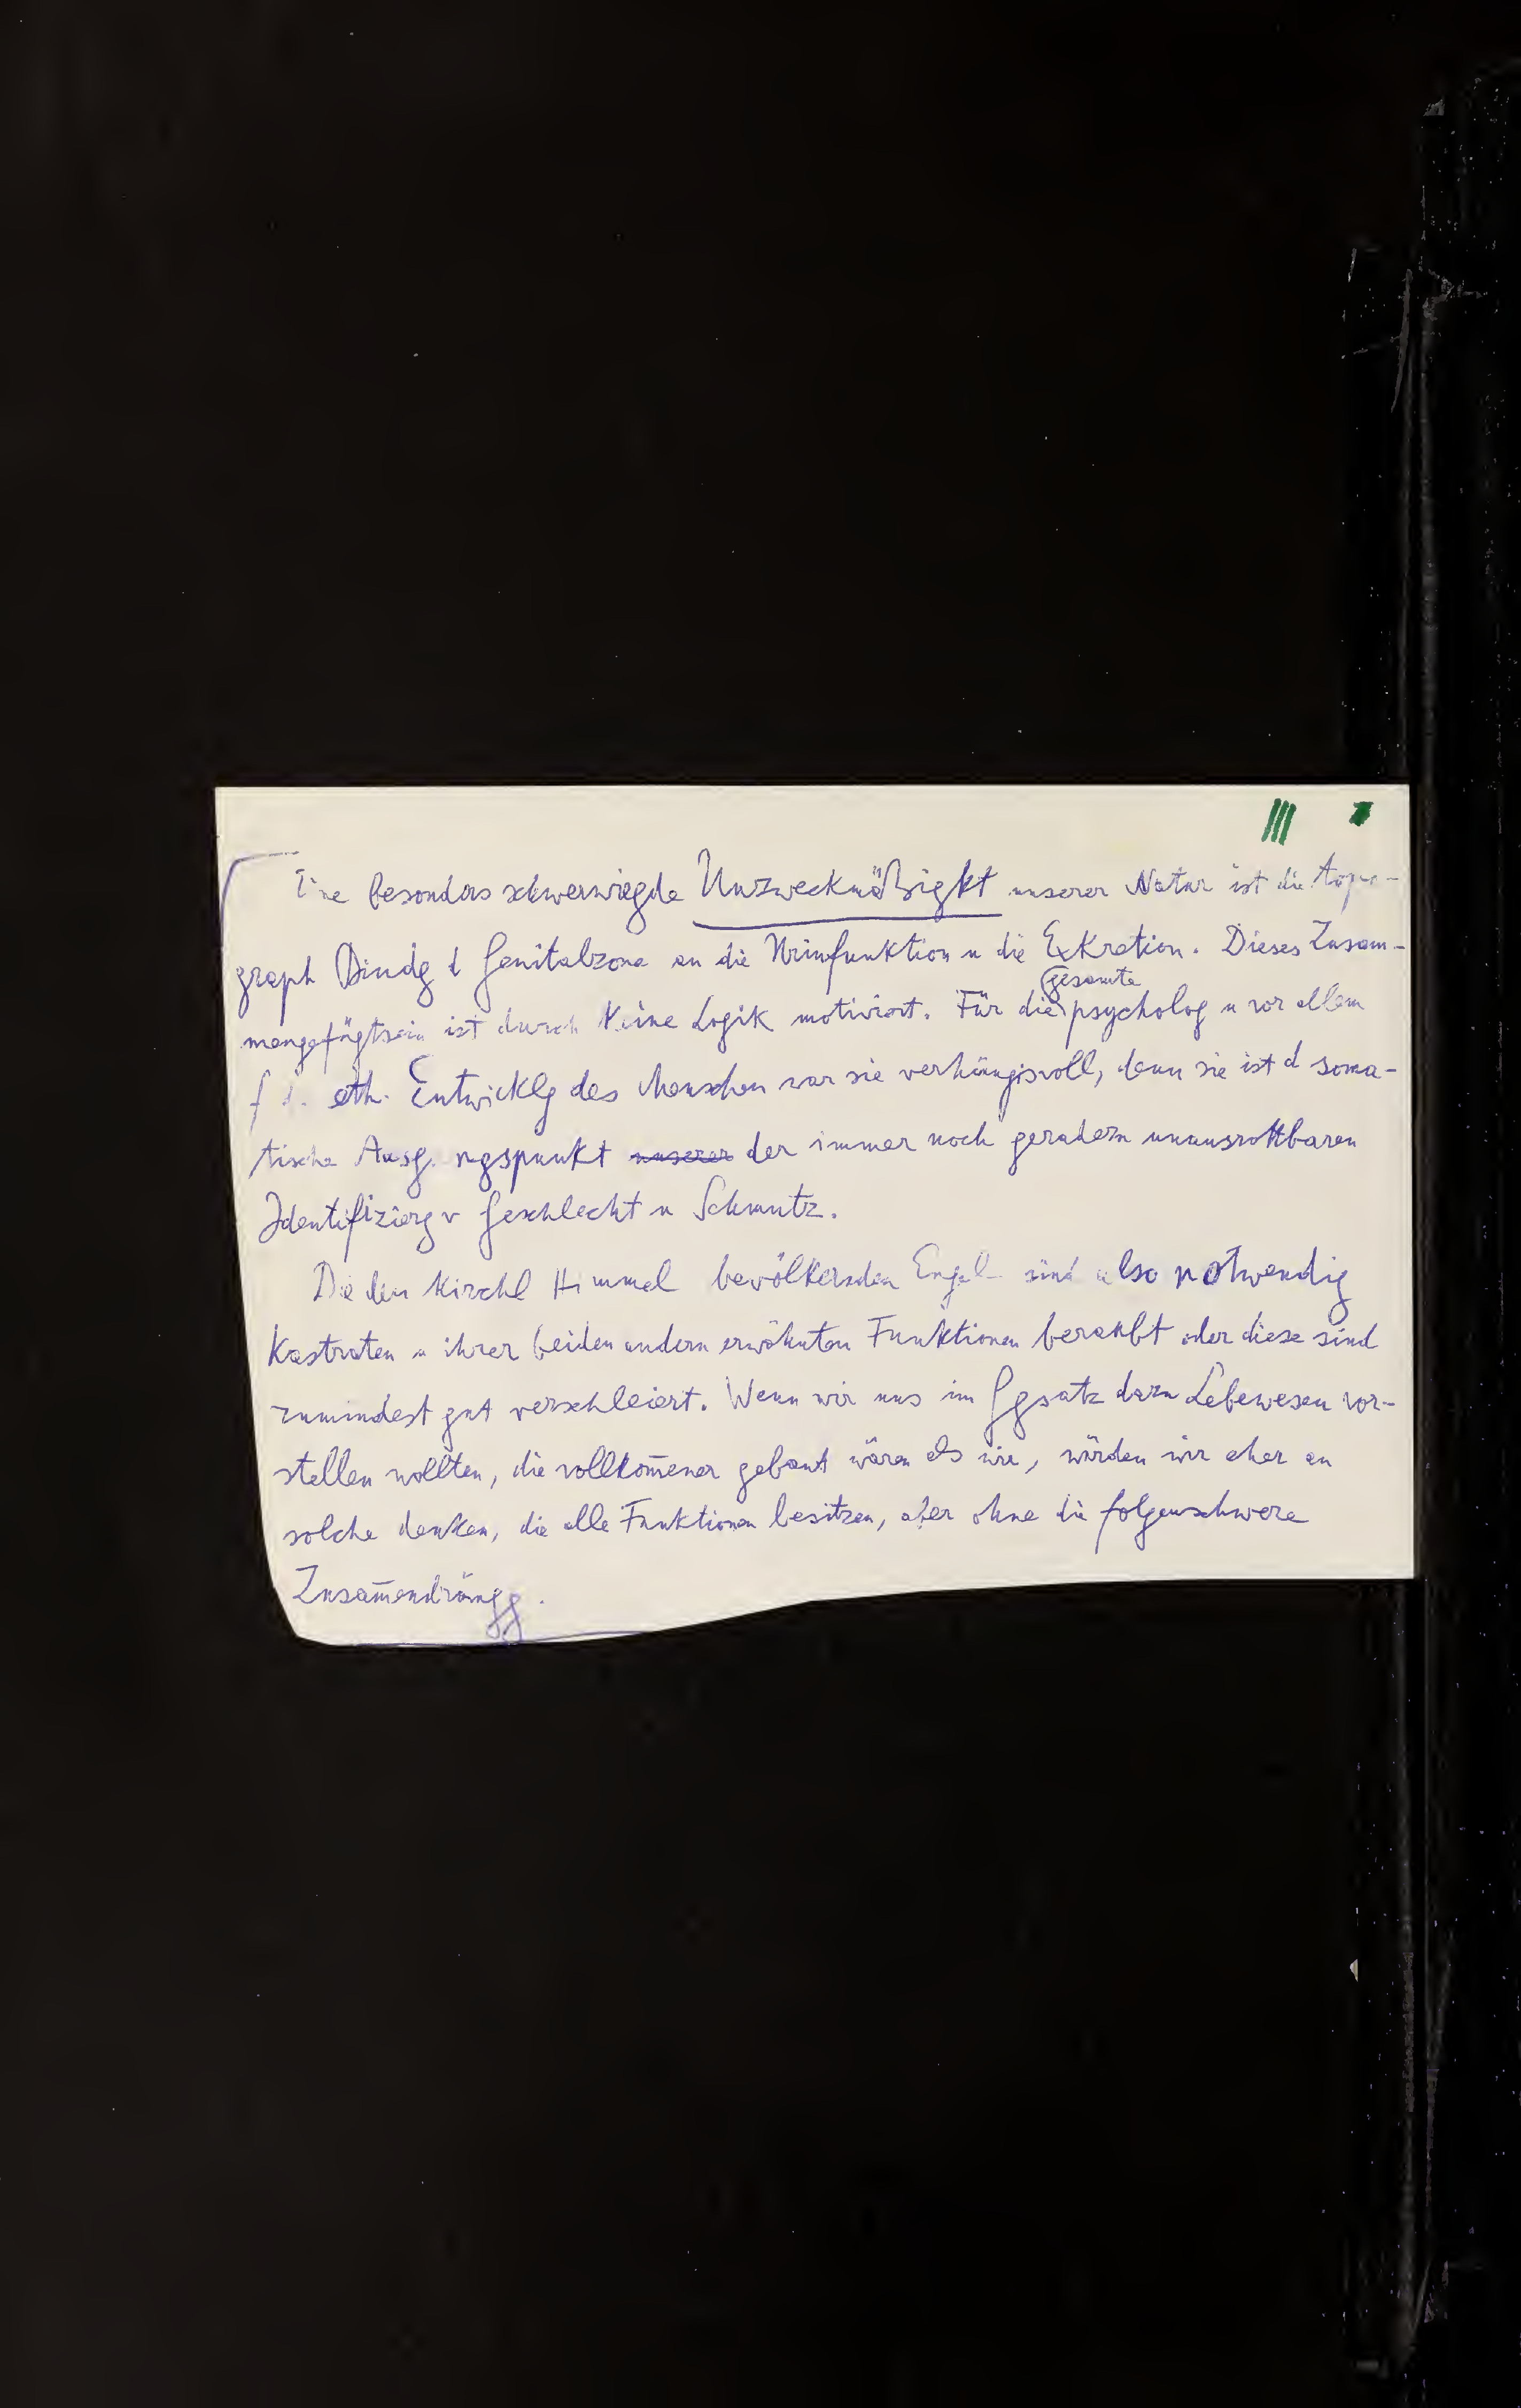 III
Eine besonders schwerwiegde Unzweckmäßigkt unserer Natur ist die topo-
graph Bindg d Genitalzone an die Urinfunktion u die Exkretion. Dieses Zusam-
mengefügtsein ist durch keine Logik motiviert. Für die gesamte psycholog u vor allem
f d. eth. Entwicklg des Menschen war sie verhängisvoll, denn sie ist d soma-
tische Ausgangspunkt unserer der immer noch geradezu unausrottbaren
Identifizierg v Geschlecht u Schmutz.
Die den kirchl Himmel bevölkernden Engel sind also notwendig
Kastraten u ihrer beiden andern erwähnten Funktionen beraubt oder diese sind
zumindest gut verschleiert. Wenn wir uns im Ggsatz dazu Lebewesen vor-
stellen wollten, die vollkom̄ener gebaut wären als wir, würden wir eher an
solche denken, die alle Funktionen besitzen, aber ohne die folgenschwere
Zusam̄endrängg.